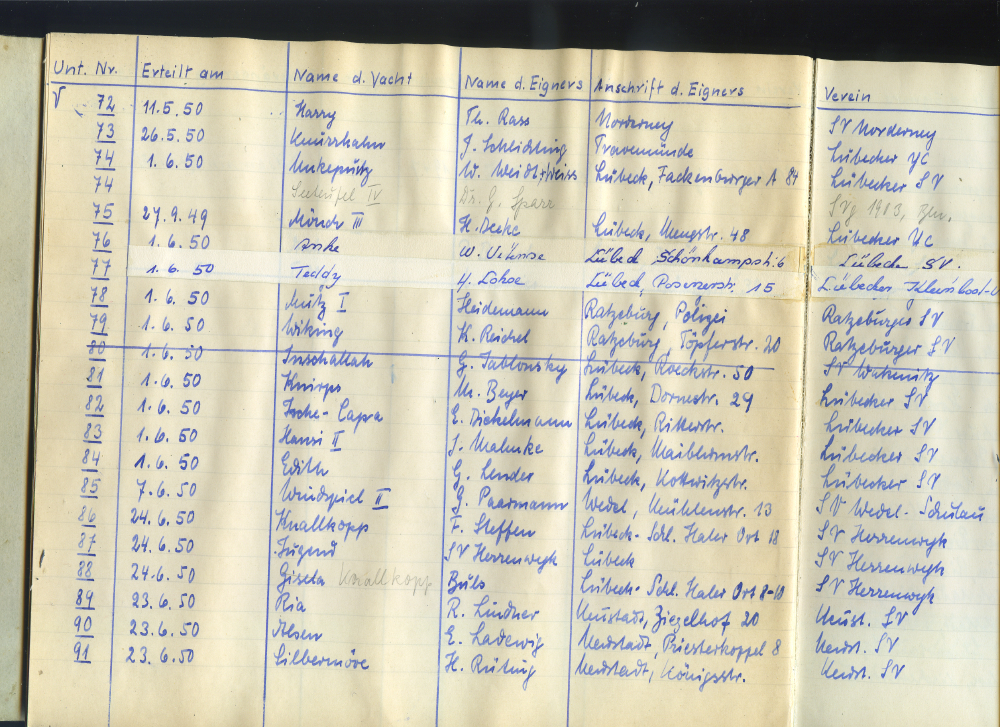 Unt. Nr. Erteilt am Name d. Yacht Name d. Eigners Anschrift d. Eigners Verein
V 72 11.5.50 Harry Th. Rass Norderney SV Norderney
73 26.5.50 Knurrhahn J. Schlichting Travemünde Lübecker YC
74 1.6.50 Unkepütz W. Weidt Lübeck, Fackenburger A 84 Lübecker SV
74 Seeteufel IV Dr. G. Sparr SVg 1903, Bln.
75 27.9.49 Mönch III H. Deeke Lübeck, Mengstr. 48 Lübecker YC
76 1.6.50 Anke W. Lübeck Schönkampstr. 6 Lübecker SV.
77 1.6.50 Teddy H. Lohse Lübeck, Posenerstr. 15 Lübecker
78 1.6.50 Mütz I Heidemann Ratzeburg, Polizei Ratzeburger SV
79 1.6.50 Wiking K. Reichel Ratzeburg, Töpferstr. 20 Ratzeburger SV
80 1.6.50 Inschallah G. Jablonsky Lübeck, Roeckstr. 50 SV Wakenitz
81 1.6.50 Knirps M. Beyer Lübeck, Dornestr. 29 Lübecker SV
82 1.6.50 Ische-Capra E. Dickelmann Lübeck, Ritterstr. Lübecker SV
83 1.6.50 Hanni II J. Mahnke Lübeck, Maiblumstr. Lübecker SV
84 1.6.50 Edith G. Lender Lübeck, Kottwitzstr. Lübecker SV
85 7.6.50 Windspiel II G. Paarmann Wedel, Mühlenstr. 13 SV Wedel-Schulau
86 24.6.50 Knallkopp F. Steffen Lübeck-Schl. Haler Ort 18 SV Herrenwyk
87 24.6.50 Jugend SV Herrenwyk Lübeck SV Herrenwyk
88 24.6.50 Gisela Knallkopp Buls Lübeck-Schl. Haler Ort 8-10 SV Herrenwyk
89 23.6.50 Ria R. Lindner Neustadt, Ziegelhof 20 Neust. SV
90 23.6.50 Alsen E. Ladewig Neustadt, Priesterkoppel 8 Neust. SV
91 23.6.50 Silbermöve H. Rüting Neustadt, Königsstr. Neust. SV